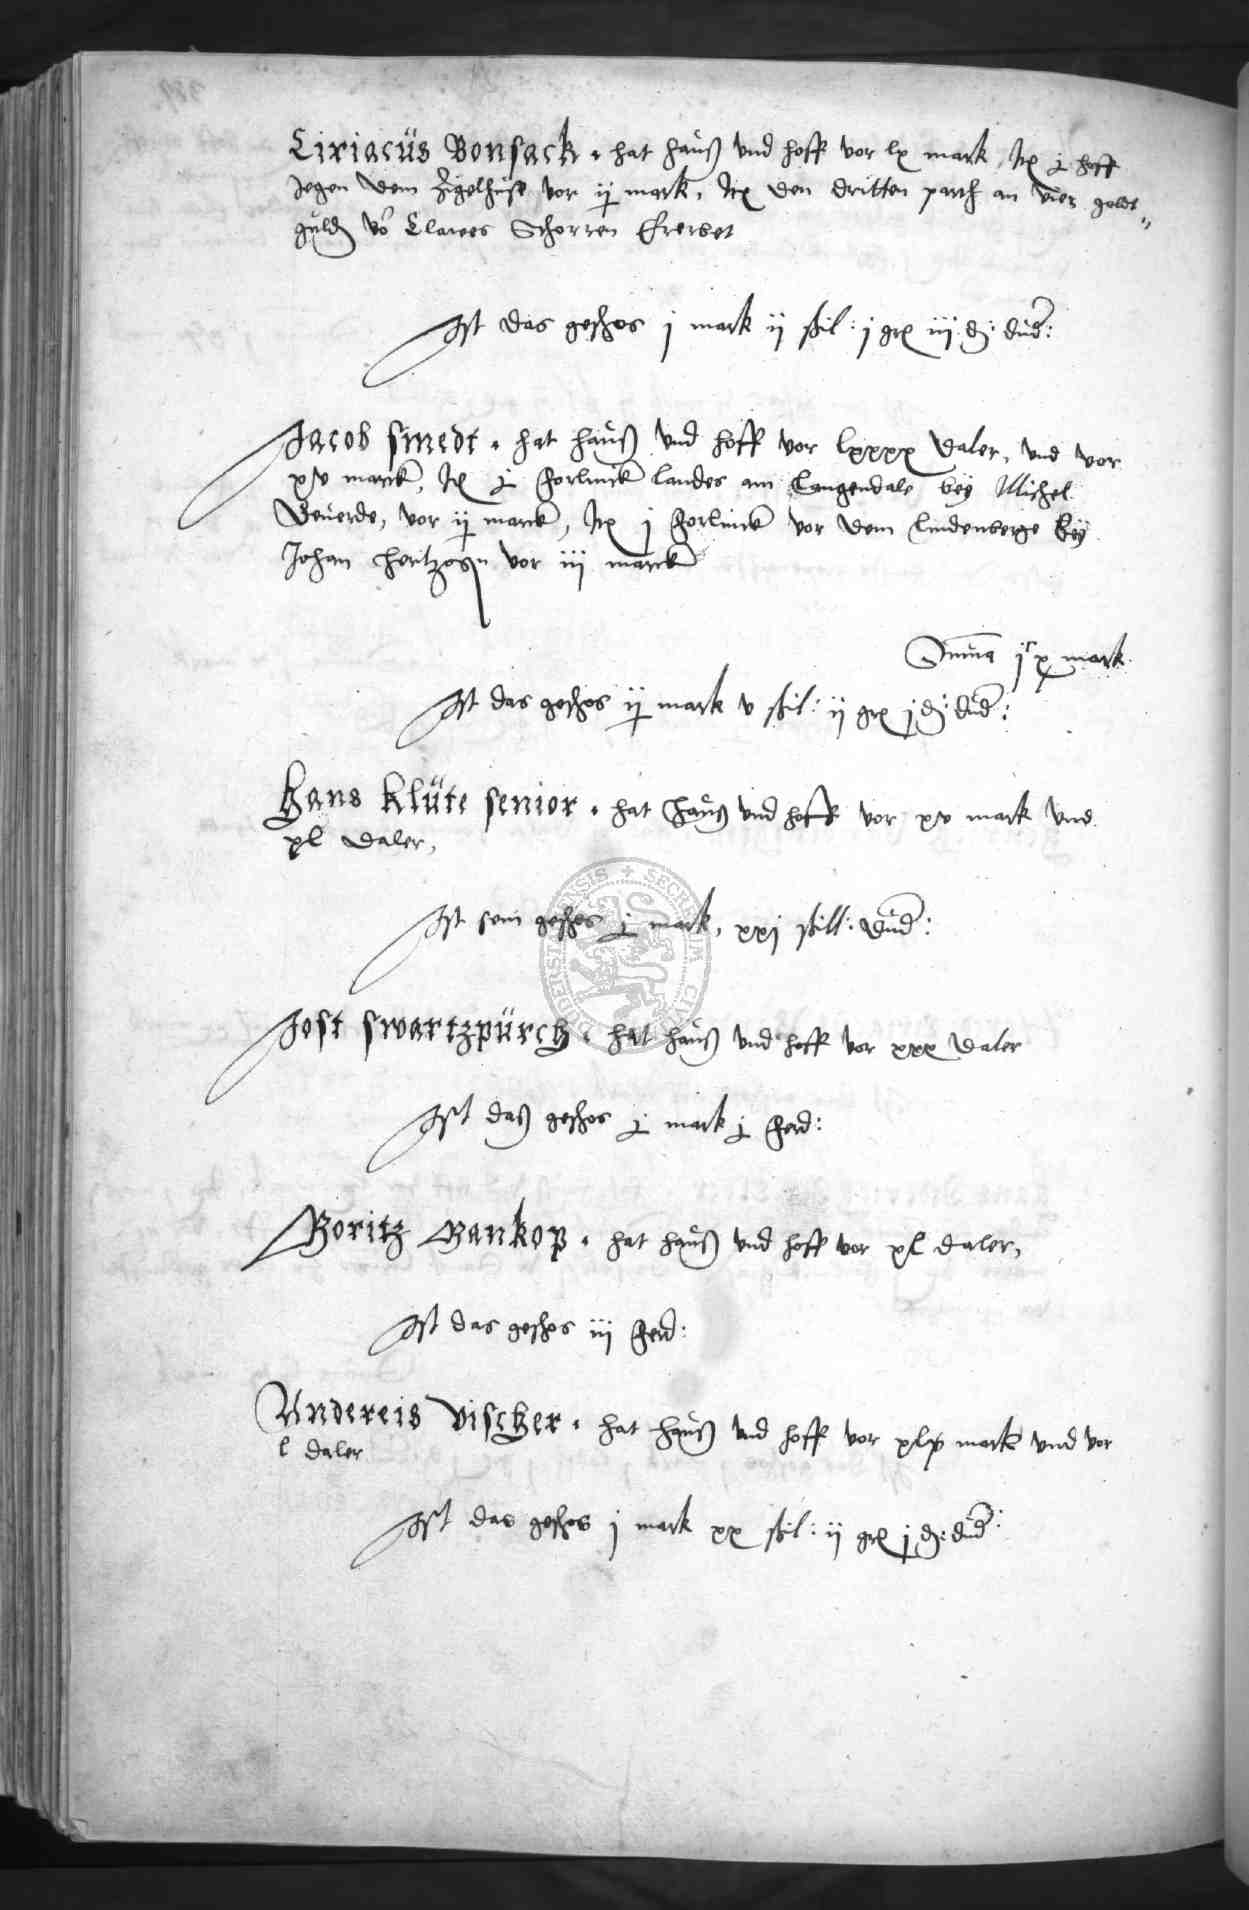 Ciriacüs Bonsack . hat hauß vnd hoff vor lx mark, Itx j hoff
jegen dem Zigelhuse vor ij mark, Itx den dritten parth an vier golt„
guld vo Clawes Schorren Ererbet
Ist das geschos j mark ij schil: j grx iij d: dud:
Jacob smedt . hat hauß vnd hoff vor lxxxx daler, vnd vor
xv marck, Itx j Forlinck landes am Langendale bey Michel
Deuerde, vor ij marck, Itx j Forlinck vor dem Lindenberge bey
Johan hertzogn vor iij marck
Summa jc x mark
Ist das geschos ij mark v schil: ij grx j d: dud:
Hans klüte senior . hat hauß vnd hoff vor xv mark vnd
xl daler,
Ist sein geschos j mark, xxj schill: dud:
Jost swartzpürch . hat hauß vnd hoff vor xxx daler
Ist daß geschos j mark j Ferd:
Moritz Mankop . hat hauß vnd hoff vor xl daler,
Ist das geschos iij Ferd:
Andereis vischer . hat hauß vnd hoff vor xlv mark vnd vor
l daler
Ist das geschos j mark xx schil: ij grx j d: dud: